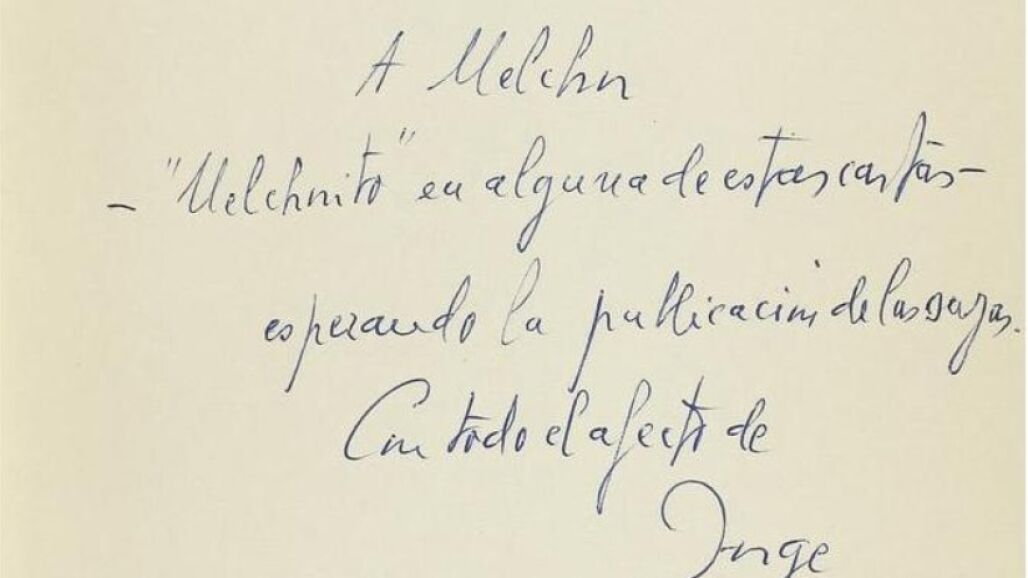 A Melchor
- "Melchorito" en alguna de estas cartas -
esperando la publicación de las suyas.
Con todo el afecto de
Jorge